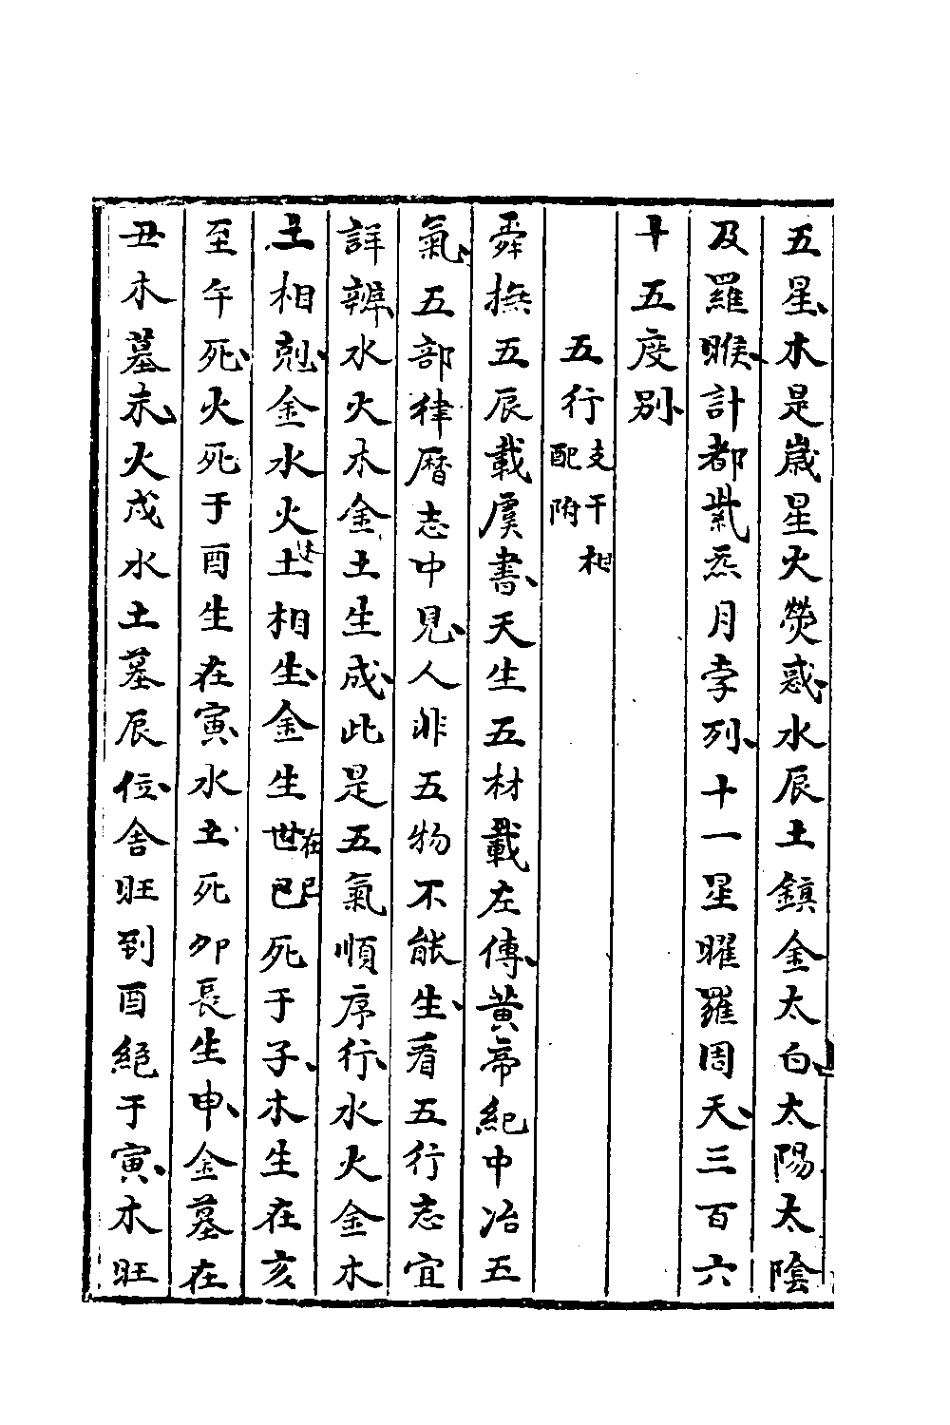 五星木是歲星火熒惑水辰土鎮金太白太陽太陰
及羅睺計都紫炁月孛列十一星曜羅周天三百六
十五度别
五行支干相配附
舜撫五辰載虞書天生五材載左傳黃帝紀中治五
氣五部律曆志中見人非五物不能生看五行志宜
詳辨水火木金土生成此是五氣順序行水火金木
土相剋金水火土相生金生世在巳巳死于子木生在亥
至午死火死于酉生在寅水土死卯長生申金墓在
丑木墓未火戌水土墓辰位舍旺到酉絕于寅木旺